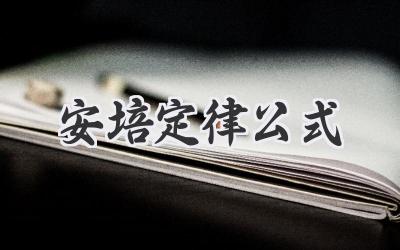 安培定律公式